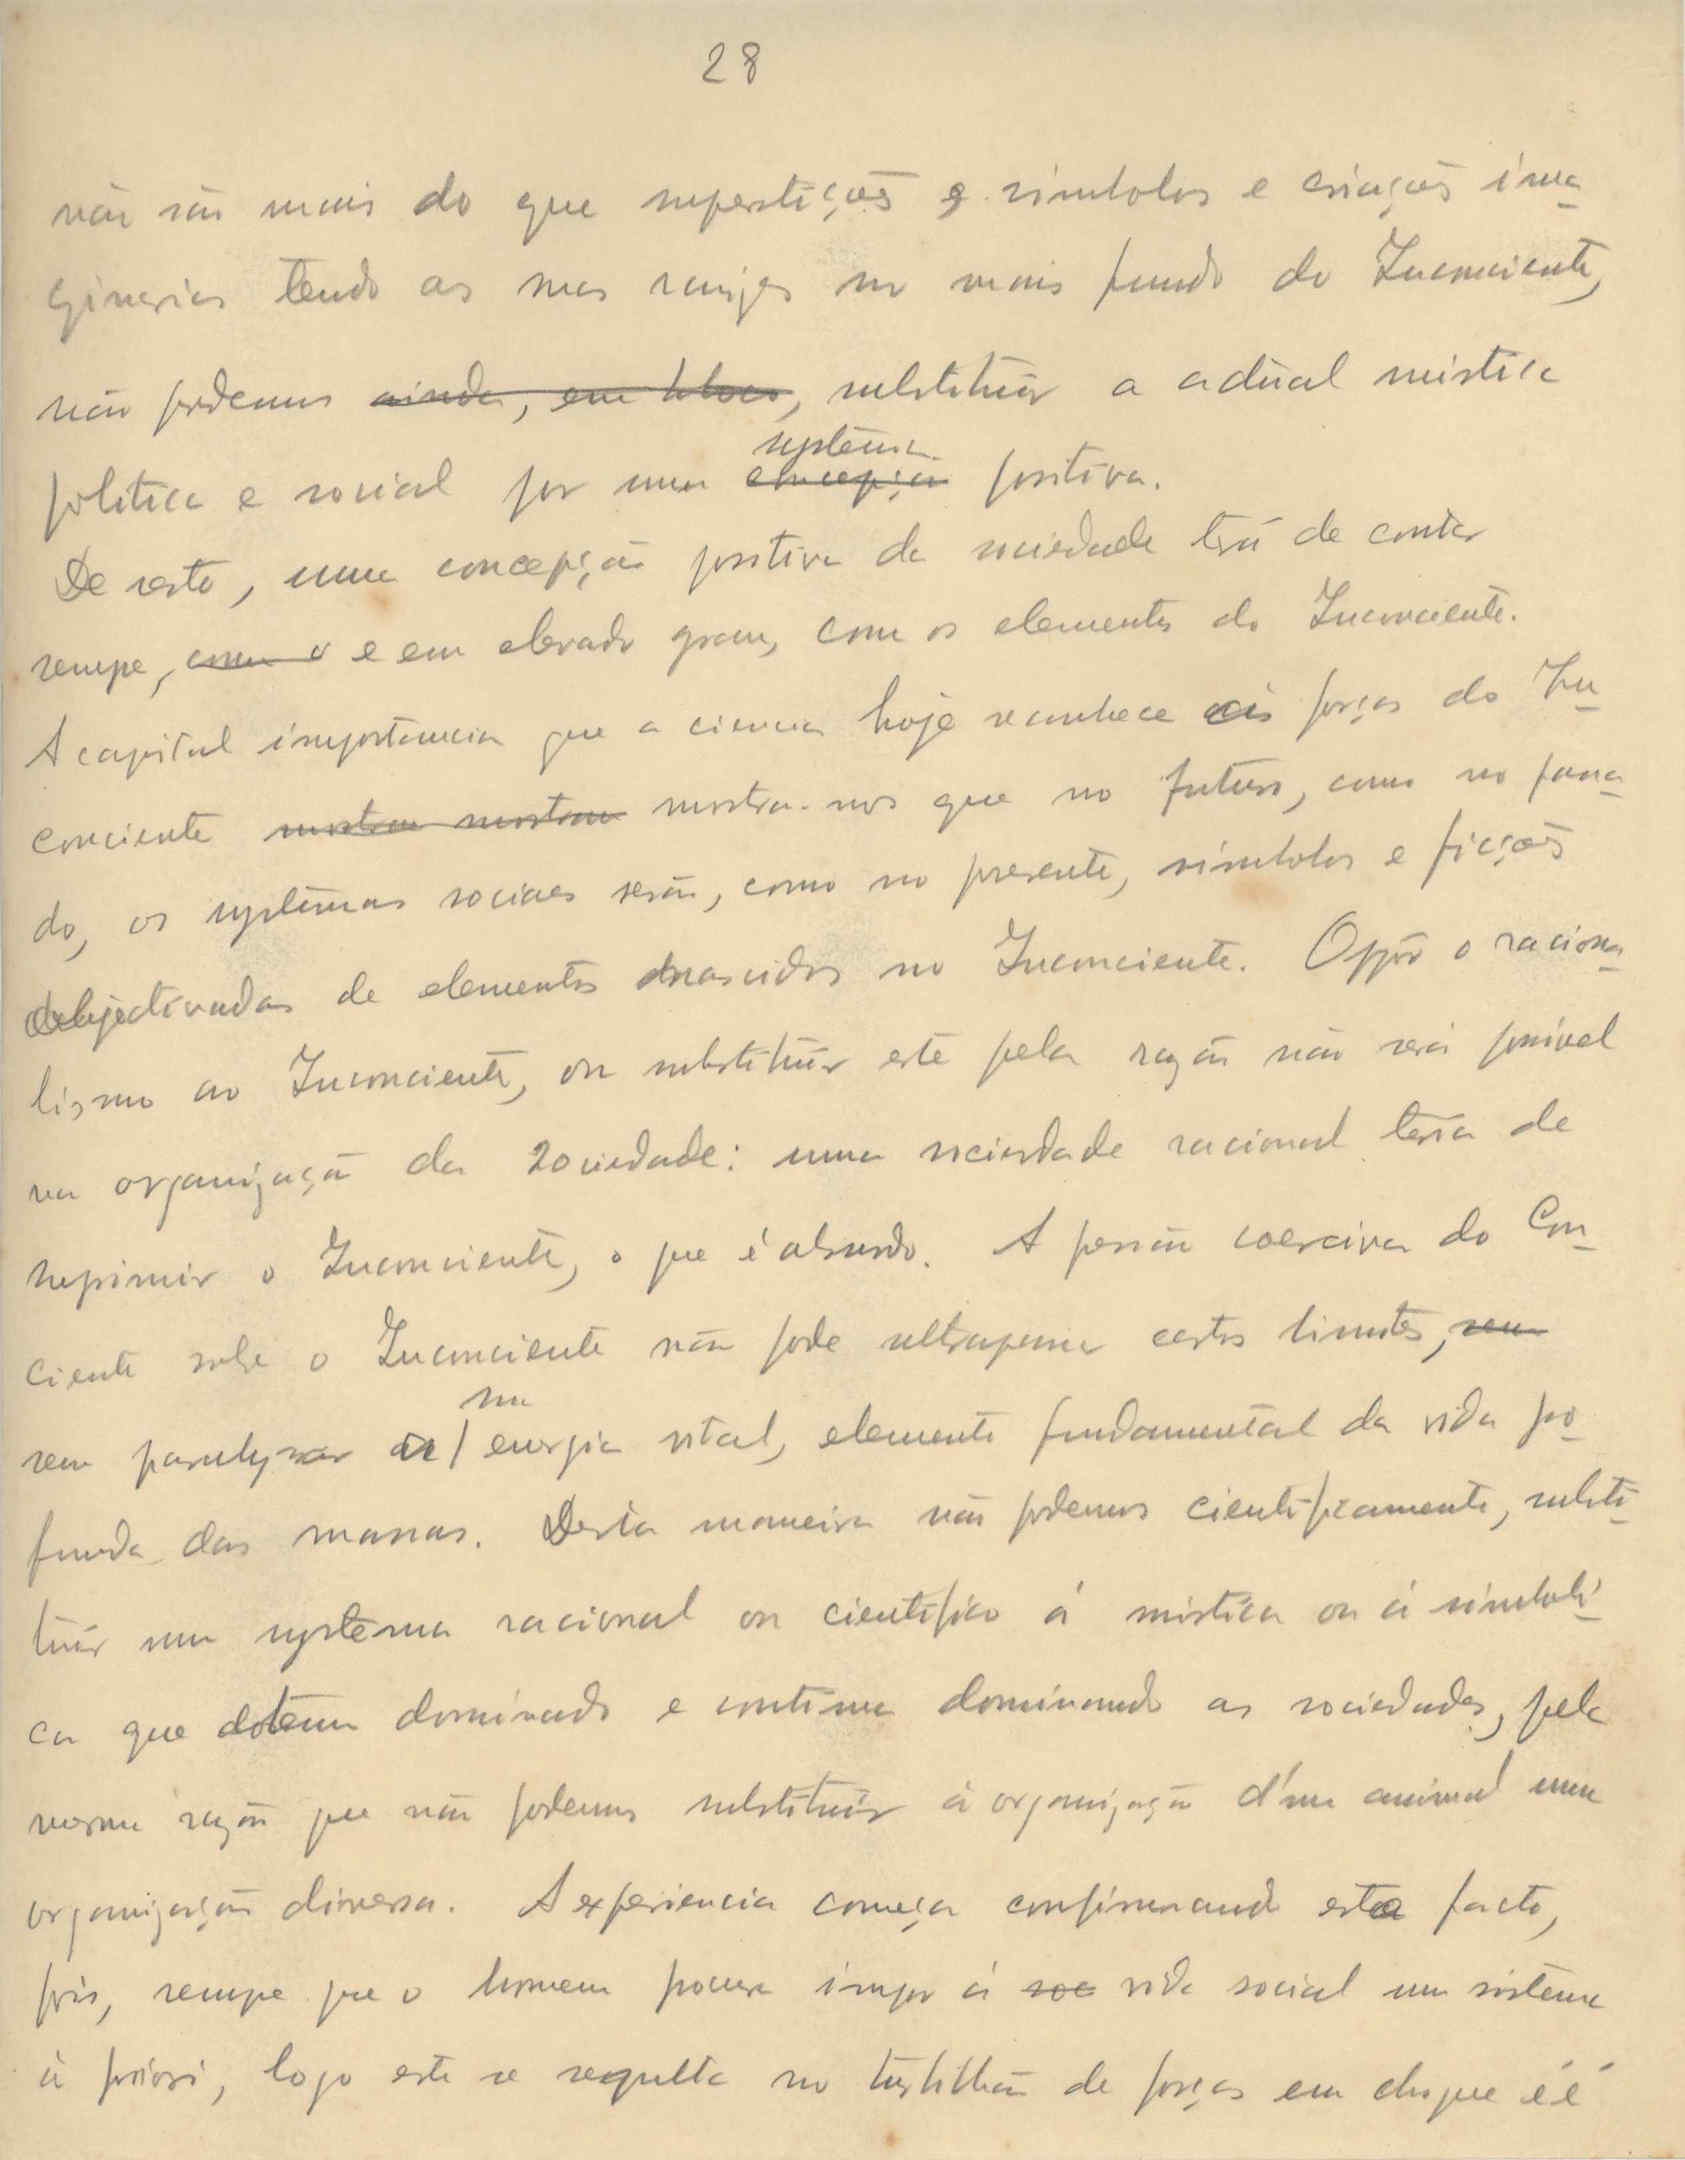 28
não são mais do que superstições e simbolos e criações ima-
ginarias tendo as suas raizes no mais fundo do Inconciente,
não podemos ainda, em bloco, substituir a actual mistica
systema
politica e social por uma concepção positiva.
De resto, uma concepção positiva da sociedade terá de contar
sempre, com o e em elevado grau, com os elementos do Inconciente.
A capital importancia que a ciencia hoje reconhece ás forças do In-
conciente mostram mostram mostra-nos que no futuro, como no passa-
do, os systemas sociaes serão, como no presente, simbolos e ficções
objectivadas de elementos nascidos no Inconciente. Oppôr o raciona-
lismo ao Inconciente, ou substituir este pela razão não será possivel
na organização da sociedade: uma sociedade racional teria de
suprimir o Inconciente, o que é absurdo. A pressão coerciva do Con-
ciente sobre o Inconciente não pode ultrapassar certos limites, sem
sua
sem paralyzar a energia vital, elemento fundamental da vida pro-
funda das massas. Desta maneira não podemos cientificamente, substi-
tuir um systema racional ou cientifico á mistica ou á simboli-
ca que tem dominado e continua dominando as sociedades, pela
mesma razão que não podemos substituir á organização d'um animal uma
organização diversa. A experiencia começa confirmando este facto,
pois, sempre que o homem procura impor á soc vida social um sistema
á priori, logo este se sepulta no turbilhão de forças em choque é é